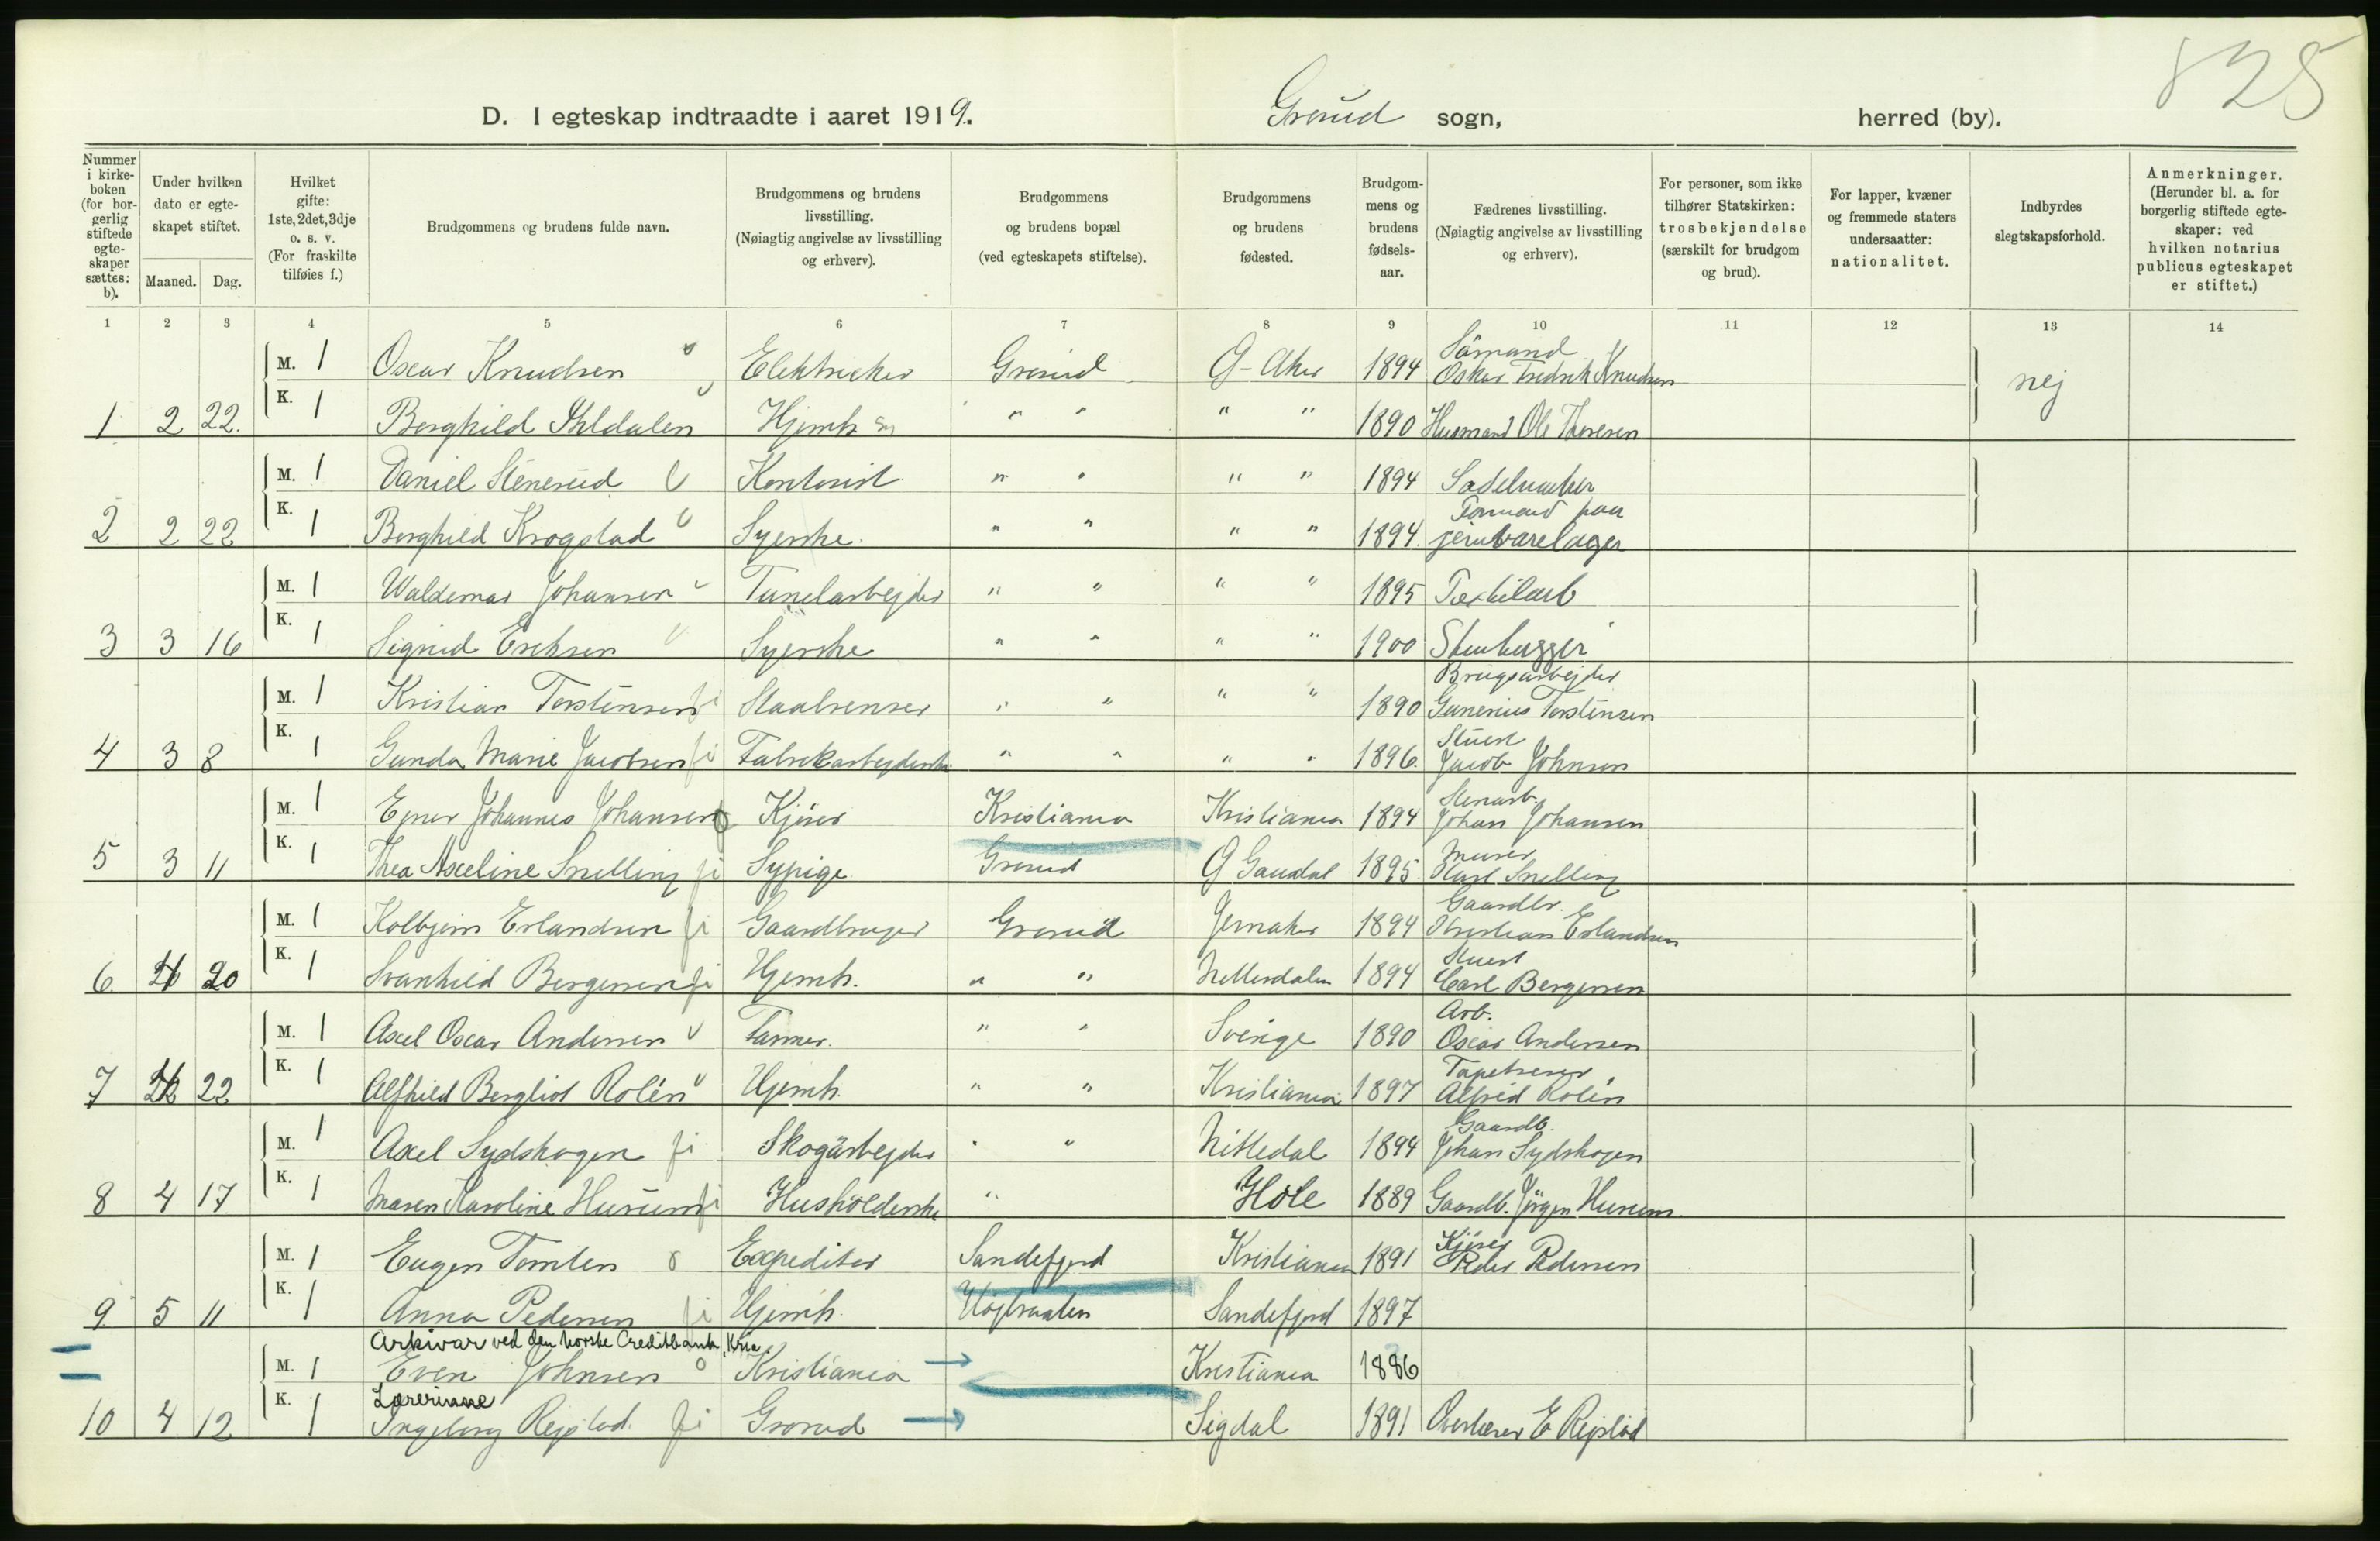 825
D. I egteskap indtraadte i aaret 1919. Grorud sogn, herred (by).
Nummer i kirkeboken (for borgerlig stiftede egteskaper sættes: b).
Under hvilken dato er egteskapet stiftet.
Maaned. Dag.
Hvilket gifte: 1ste, 2det, 3dje o. s. v. (For fraskilte tilføies f.)
Brudgommens og brudens fulde navn.
Brudgommens og brudens livsstilling. (Nøiagtig angivelse av livsstilling og erhverv).
Brudgommens og brudens bopæl (ved egteskapets stiftelse).
Brudgommens og brudens fødested.
Brudgommens og brudens fødselsaar.
Fædrenes livsstilling. (Nøiagtig angivelse av livsstilling og erhverv).
For personer, som ikke tilhører Statskirken: trosbekjendelse (særskilt for brudgom og brud).
For lapper, kvæner og fremmede staters undersaatter: nationalitet.
Indbyrdes slegtskapsforhold.
Anmerkninger. (Herunder bl. a. for borgerlig stiftede egteskaper: ved hvilken notarius publicus egteskapet er stiftet.)
1 2 3 4 5 6 7 8 9 10 11 12 13 14
M. 1 Oscar Knudsen Elektriker Grorud Ø-Aker 1894 Sømand Oskar Fredrik Knudsen nej
1 2 22. K. 1 Borghild Hjemb. " " " " 1890 Husmand Ole Thoresen
M. 1 Daniel Stenerud Kontorist " " " " 1894 Sadelmaker
2 2 22 K. 1 Borghild Krogstad Syerske. " " " " 1894 Formand paa jernvarelager
M. 1 Waldemar Johansen Tunelarbejder " " " " 1895 Textilarb
3 3 16 K. 1 Sigrid Eriksen Syerske " " " " 1900 Stenhugger
M. 1 Kristian Torstensen Staalrenser " " " " 1890 Brugsarbejder Gunerius Torstensen
4 3 8 K. 1 Gunda Marie Jacobsen Fabrikarbejderske " " " " 1896. Stuert Jacob Johnsen
M. 1 Ejner Johannes Johansen Kjører Kristiania Kristiania 1894 Stenarb. Johan Johansen
5 3 11 K. 1 Thea Axeline Snelling Sypige Grorud Ø Gausdal 1895. Murer Karl Snelling
M. 1 Kolbjørn Erlandsen Gaardbruger Grorud Jevnaker 1894 Gaardbr. Kristian Erlandsen
6 4 20 K. 1 Svanhild Bergersen Hjemb. " " Nittedalen 1894 Stuert Carl Bergersen
M. 1 Axel Oscar Andersen Farmer. " " Sverige 1890 Arb. Oscar Andersen
7 4 22 K. 1 Alfhild Bergliot Rolén Hjemb. " " Kristiania 1897 Tapetserer Alfred Rolén
M. 1 Axel Sydskogen Skogarbejder " " Nittedal 1894 Gaardb. Johan Sydskogen
8 4 17 K. 1 Maren Karoline Husum Husholderske " Hole 1889 Gaardb. Jörgen Husum
M. 1 Eugen Tomten Expeditør Sandefjord Kristiania 1891 Kjører Peder Pedersen
9 5 11 K. 1 Anna Pedersen Hjemb. Høibraaten Sandefjord 1897
Arkivar ved den Norske Creditbank, Kria.
M. 1 Even Johnsen Kristiania Kristiania 1886
Lærerinne
10 4 12 K. 1 Ingeborg Rejstad Grorud Sigdal 1891 Overlærer E Rejstad